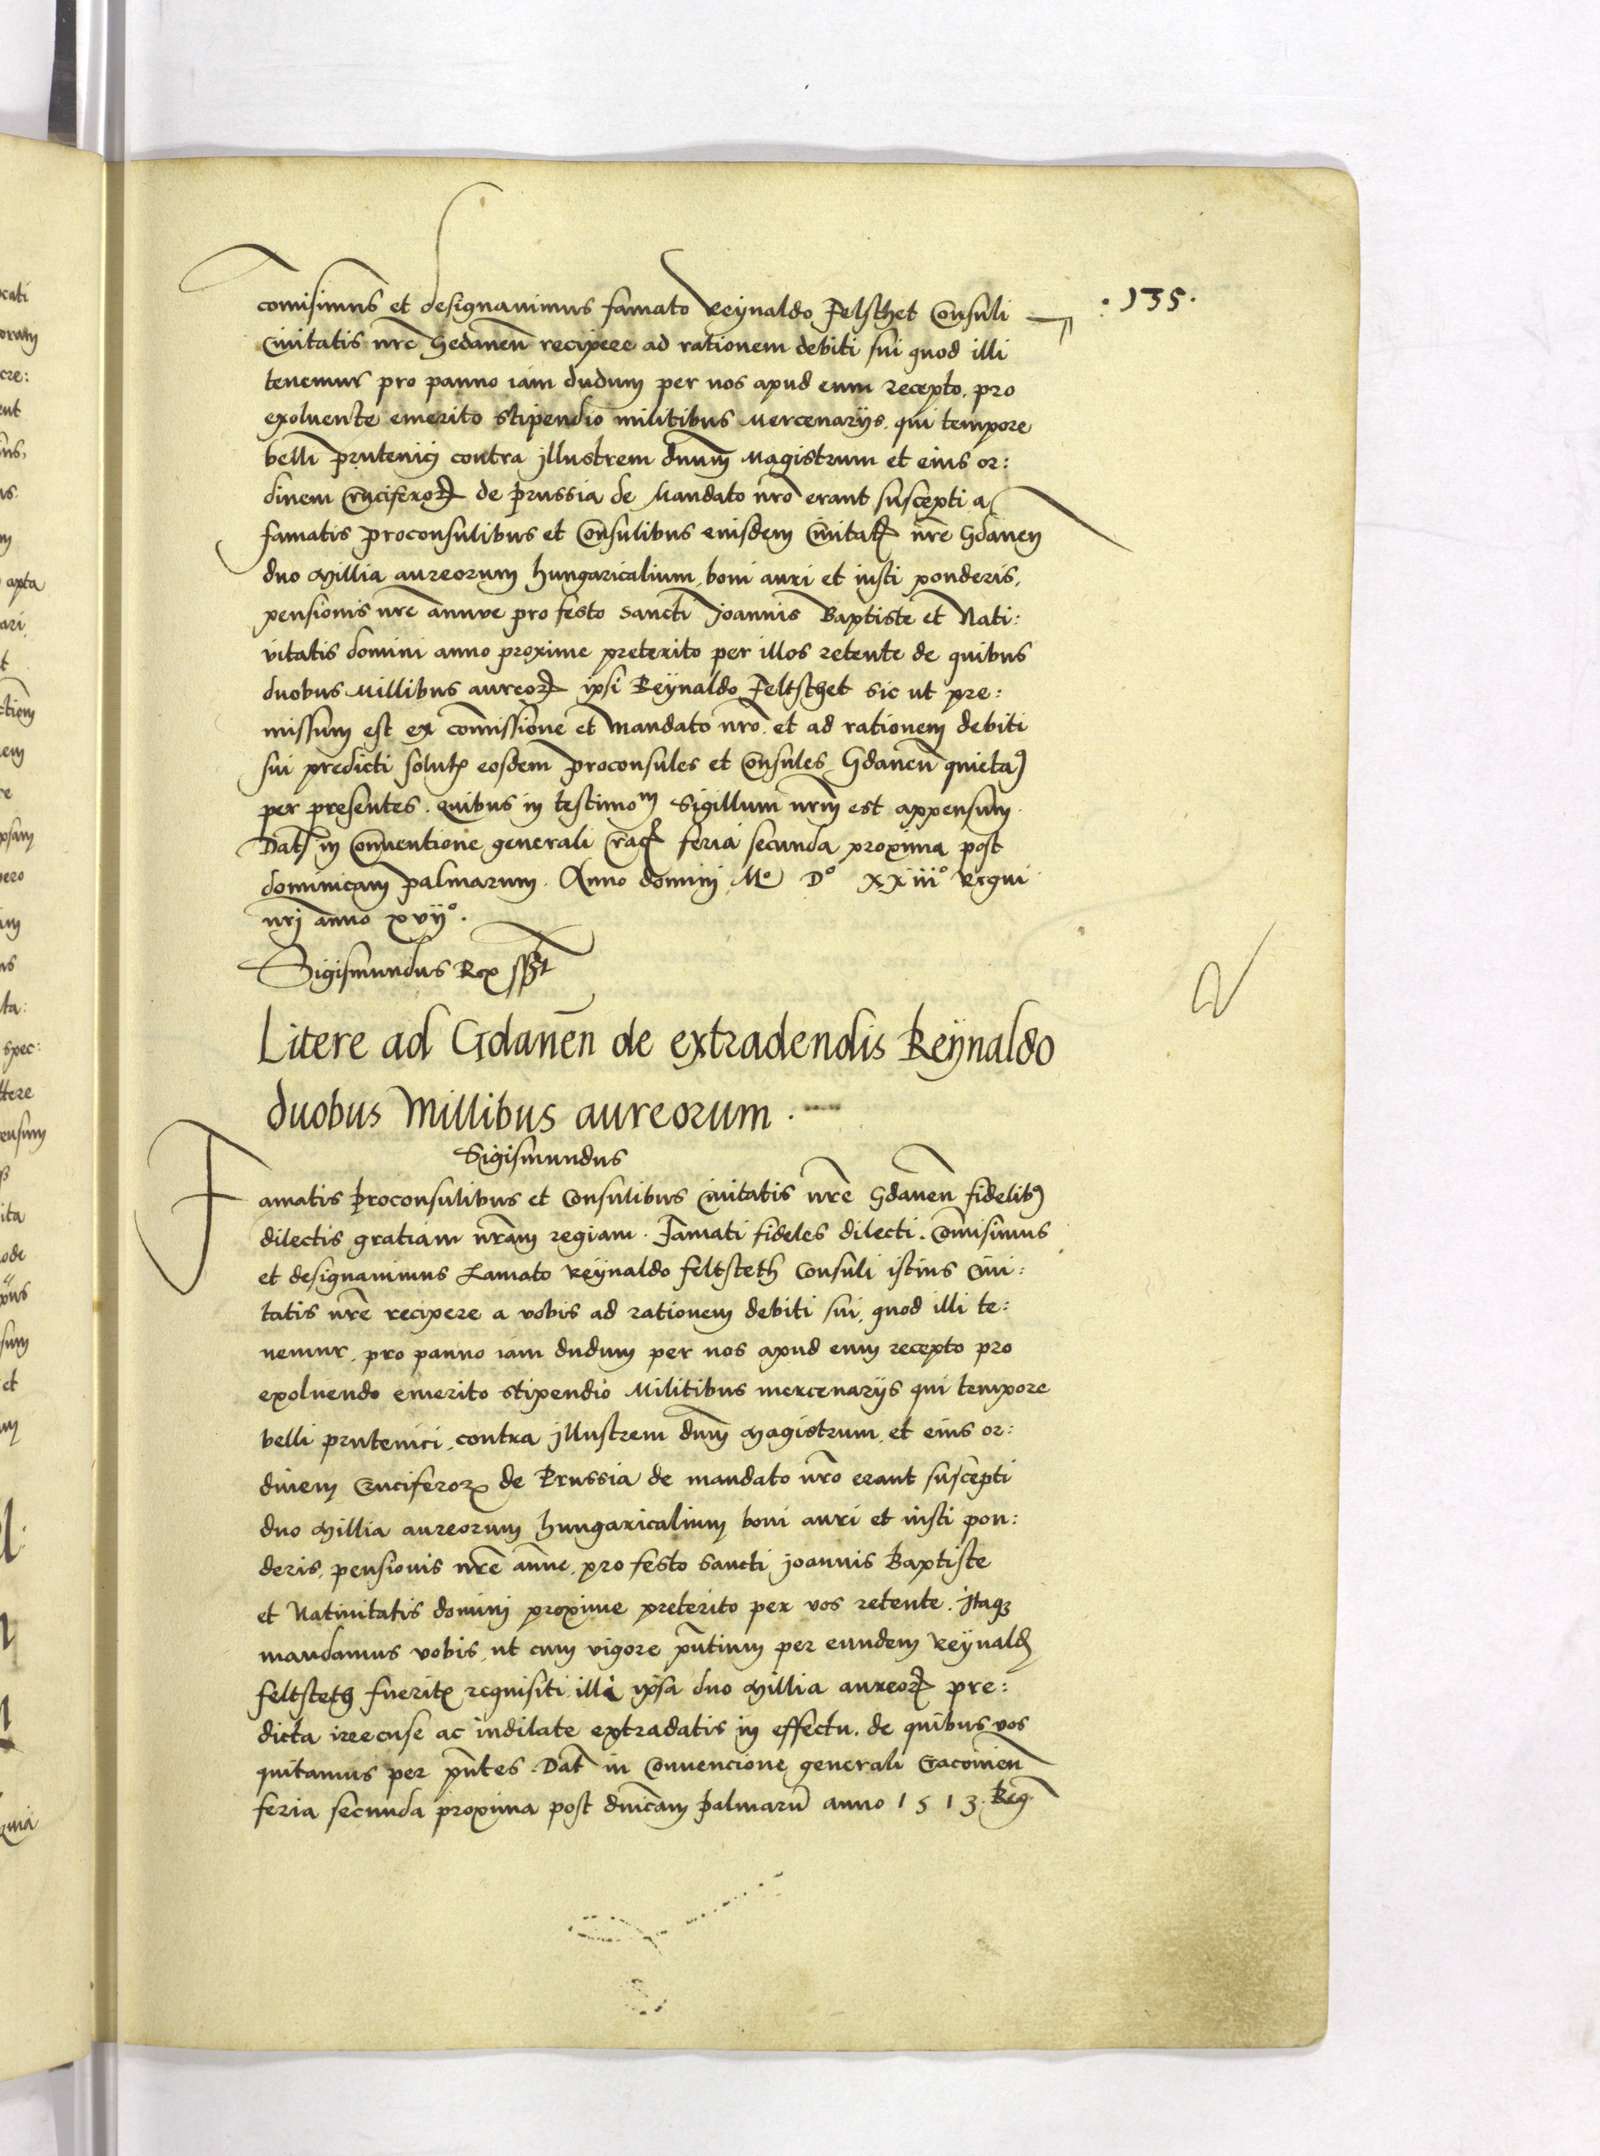 .135.
comisimus et designauimus famato Reynaldo Felsthet Consuli
Ciuitatis nre Gedanen recipere ad rationem debiti sui quod illi
tenemur pro panno iam dudum per nos apud eum recepto, pro
exoluente emerito stipendio militibus Mercenarijs, qui tempore
belli prutenici contra jllustrem dnum Magistrum et eius or:
dinem Cruciferor de Prussia de Mandato nro erant suscepti a
famatis Proconsulibus et Consulibus euisdem Ciuitat nre Gdanen
duo Millia aureorum hungaricalium, boni auri et iusti ponderis,
pensionis nre annue pro festo sancti Joannis Baptiste et Nati:
vitatis domini anno proxime preterito per illos retente de quibus
duobus Millibus aureor ipsi Reynaldo Feltsthet sic ut pre:
missum est ex comissione et Mandato nro et ad rationem debiti
sui predicti solut eosdem Proconsules et Consules Gdanen quieta
per presentes. quibus in testimom Sigillum nrm est appensum.
Dat in Conuentione generali Crac feria secunda proxima post
dominicam palmarum. Anno domini Mo Do XXiiio Regni
nrj anno xvijo.
Sigismundus Rex sspt
Litere ad Gdanen de extradendis Reynaldo
duobus Millibus aureorum.
Sigismundus
Famatis Proconsulibus et Consulibus Ciuitatis nre Gdanen fidelib
dilectis gratiam nram regiam. Famati fideles dilecti. Comisimus
et designauimus Lamato Reynaldo Feltsteth Consuli istius Ciui:
tatis nre recipere a vobis ad rationem debiti sui, quod illi te:
nemur, pro panno iam dudum per nos apud eum recepto pro
exoluendo emerito stipendio Militibus mercenarijs qui tempore
belli prutenici, contra jllustrem dnm Magistrum, et eius or:
dinem Cruciferor de Prussia de mandato nro erant suscepti
duo Millia aureorum hungaricalium boni auri et iusti pon:
deris, pensionis nre anne, pro festo sancti joannis Baptiste
et Natiuitatis domini proxime preterito per vos retente. Itaq
mandamus vobis, ut cum vigore pntium per eundem Reynald
feltsteth fuerit requisiti illi ipsa duo Millia aureor pre:
dicta irrecuse ac indilate extradatis in effectu, de quibus vos
quitamus per pntes. Dat in Conuencione generali Cracouien
feria secunda proxima post dnicam palmaru anno 1513. Reg